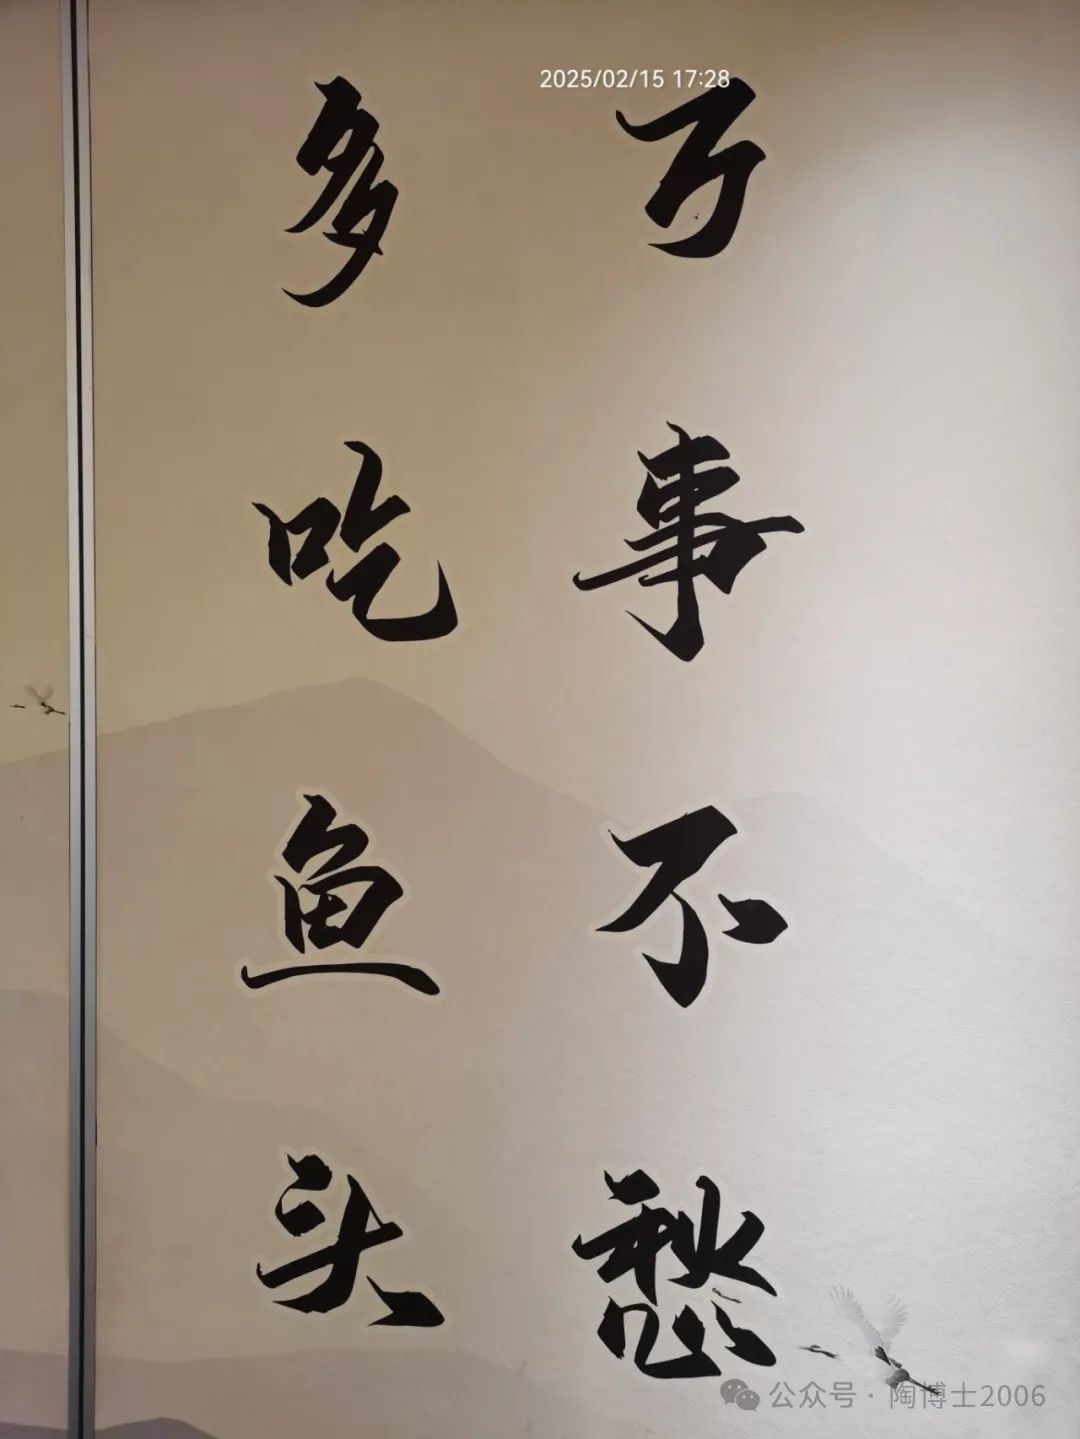 2025/02/15 17:28
万事不愁
多吃鱼头
公众号·陶博士2006